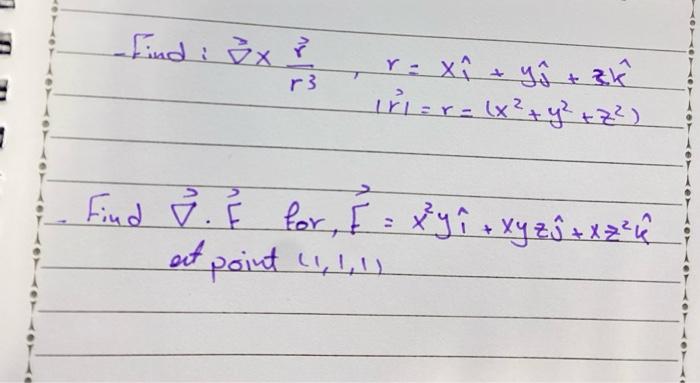 - Find : ∇⃗ × r⃗/r3 , r = xî + yĵ + zk̂
|r⃗| = r = (x² + y² + z²)
- Find ∇⃗ . F⃗ for, F⃗ = x²yî + xyzĵ + xz²k̂
at point (1,1,1)